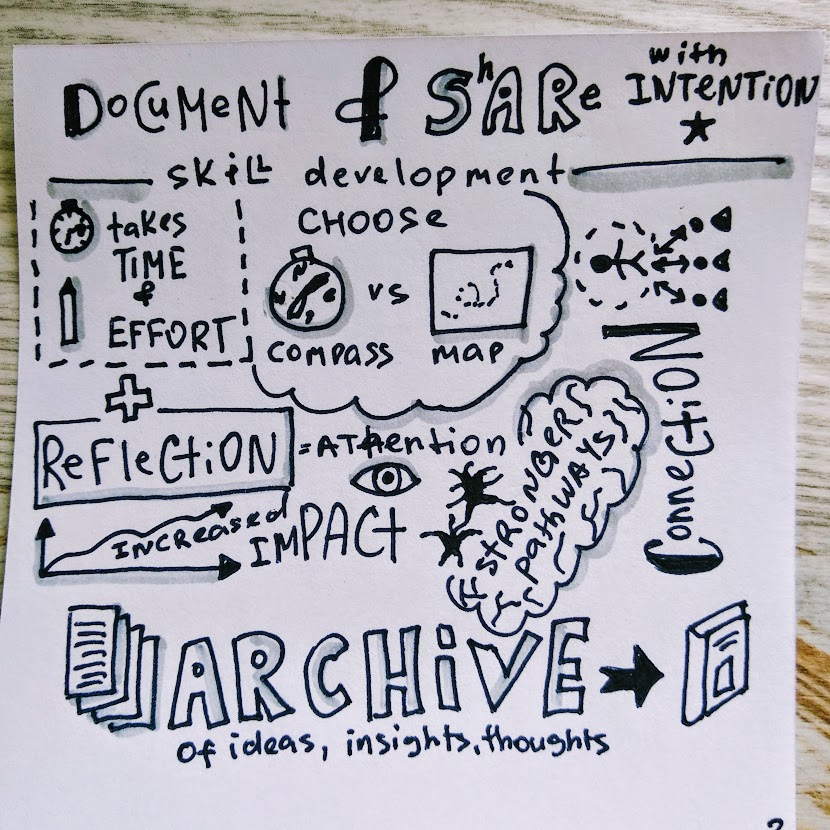 DOCUMENT & ShARe with INTENTION
skill development
takes
TIME
&
EFFORT
CHOOSE
compass vs map
N
CONNECTION
+
REFLECTION = ATTention
INCReased IMPACT
STRONGERS
pathways
ARCHiVE
of ideas, insights, thoughts